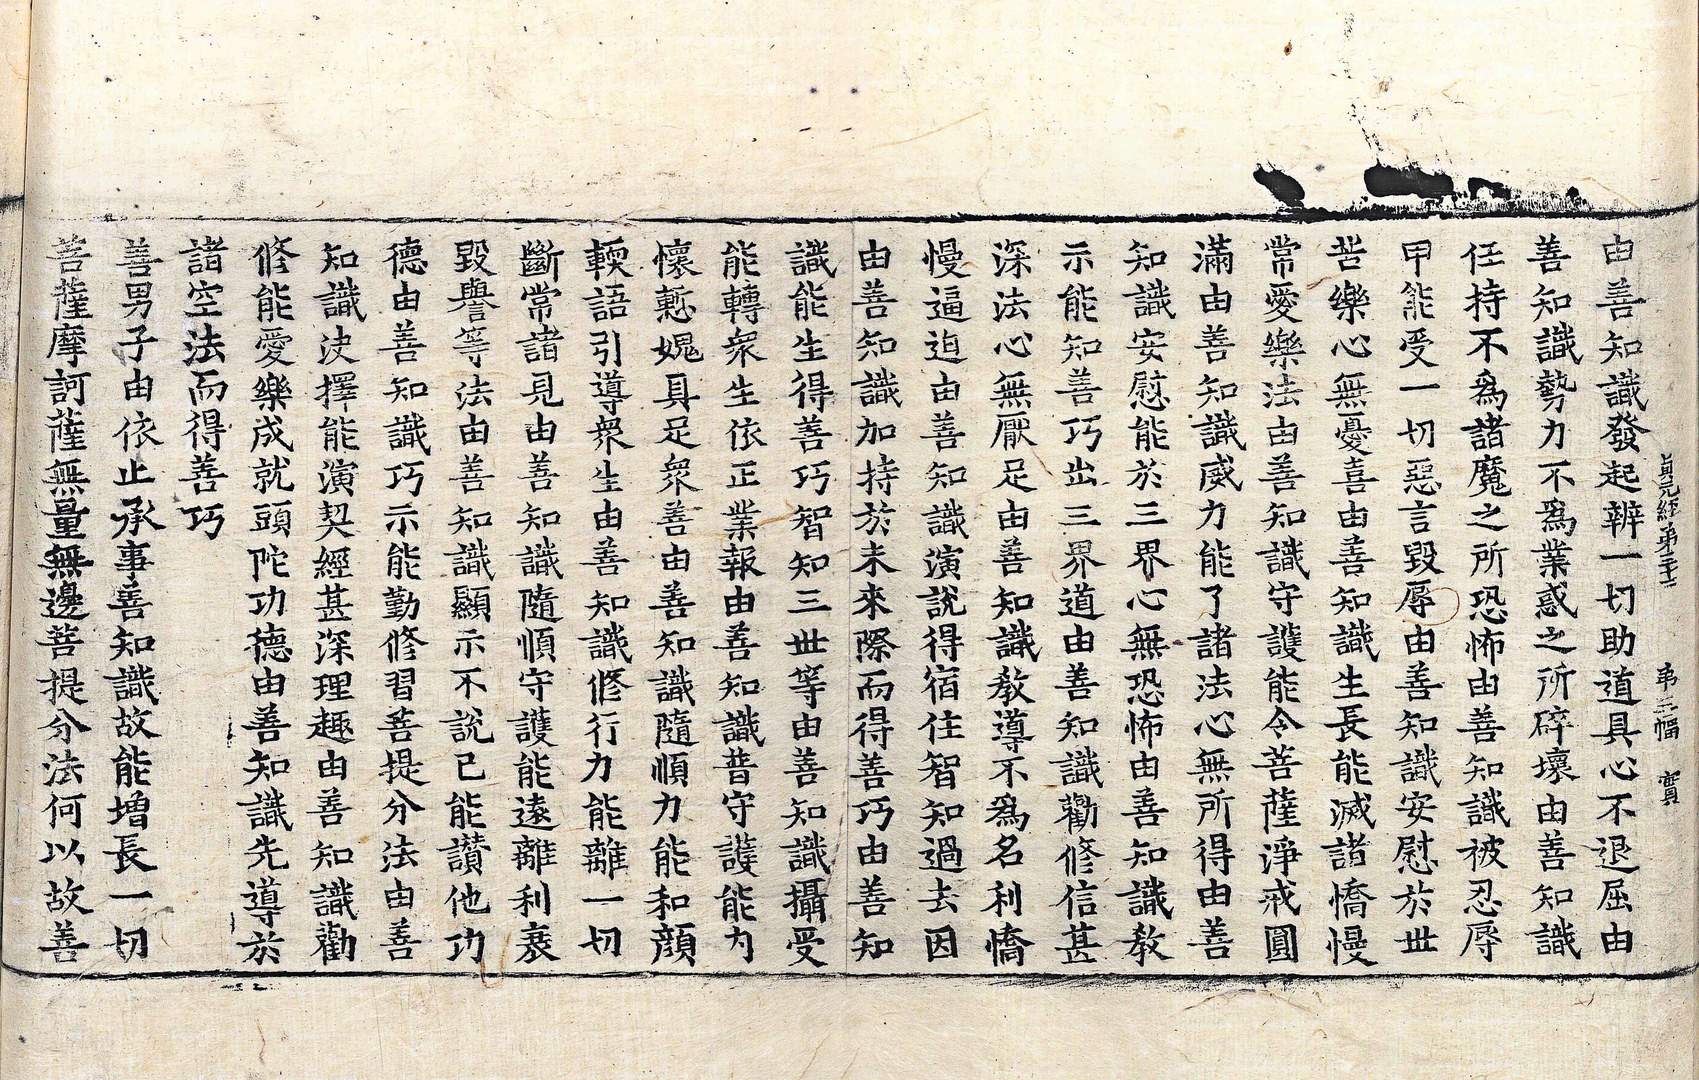 貞元經第三十二 第三幅 實
由善知識發起辨一切助道具心不退屈由
善知識勢力不爲業惑之所碎壞由善知識
任持不爲諸魔之所恐怖由善知識被忍辱
甲能受一切惡言毀辱由善知識安慰於世
苦樂心無憂喜由善知識生長能滅諸憍慢
常愛樂法由善知識守護能令菩薩淨戒圓
滿由善知識威力能了諸法心無所得由善
知識安慰能於三界心無恐怖由善知識教
示能知善巧出三界道由善知識勸修信甚
深法心無厭足由善知識教導不爲名利憍
慢逼迫由善知識演說得宿住智知過去因
由善知識加持於未來際而得善巧由善知
識能生得善巧智知三世等由善知識攝受
能轉衆生依正業報由善知識普守護能內
懷慙媿具足衆善由善知識隨順力能和顔
輭語引導衆生由善知識修行力能離一切
斷常諸見由善知識隨順守護能遠離利衰
毀譽等法由善知識顯示不說已能讃他功
德由善知識巧示能勤修習菩提分法由善
知識決擇能演契經甚深理趣由善知識勸
修能愛樂成就頭陀功德由善知識先導於
諸空法而得善巧
善男子由依止承事善知識故能增長一切
菩薩摩訶薩無量無邊菩提分法何以故善